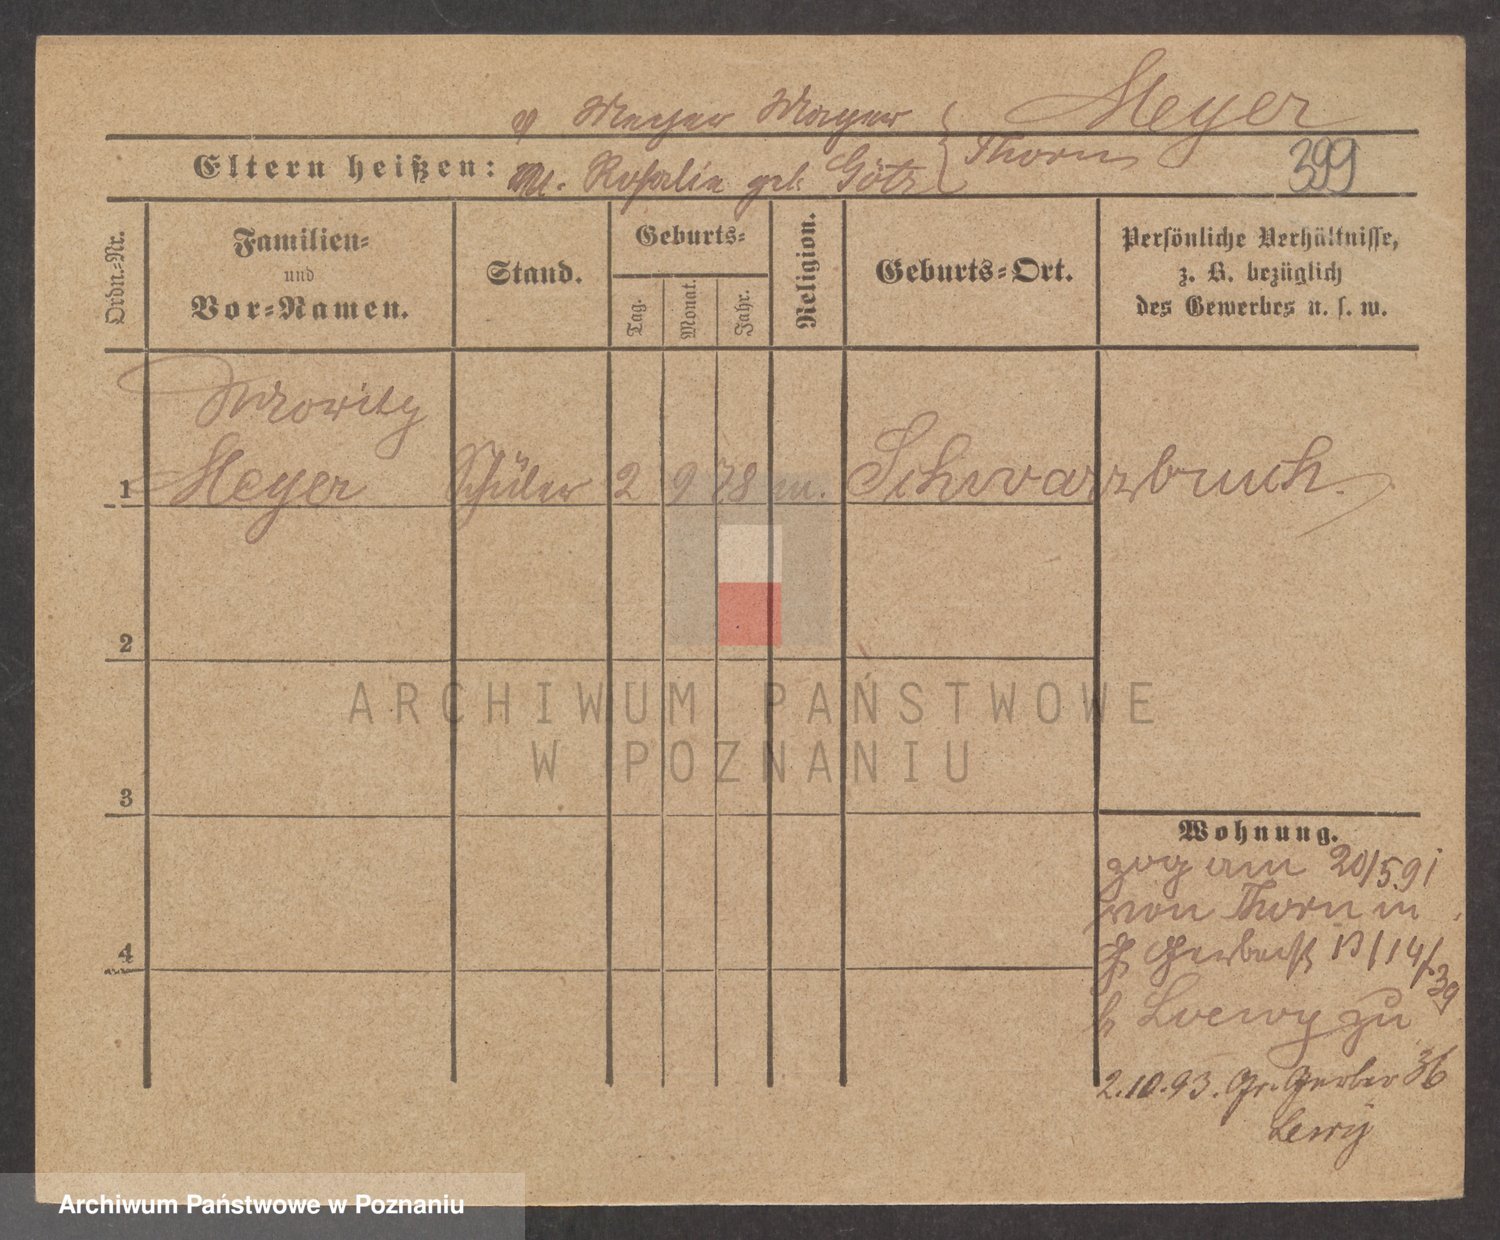 Meyer
v Meyer Mayer } Thorn
399
Eltern heißen: M. Rosalie geb. Götz
Ordn.-Nr.
Familien-
und
Vor-Namen.
Stand.
Geburts-
Tag.
Monat.
Jahr.
Religion.
Geburts-Ort.
Persönliche Verhältnisse,
z. B. bezüglich
des Gewerbes u. s. w.
Moritz
1 Meyer Schüler 2 9 78 m. Schwarzbruch.
2
3
4
Wohnung.
zog am 20/5 91
von Thorn in
13/14 39
b Loewy zu
2.10.93. Gr. Gerber 36
Lewy
ARCHIWUM PAŃSTWOWE
W POZNANIU
Archiwum Państwowe w Poznaniu